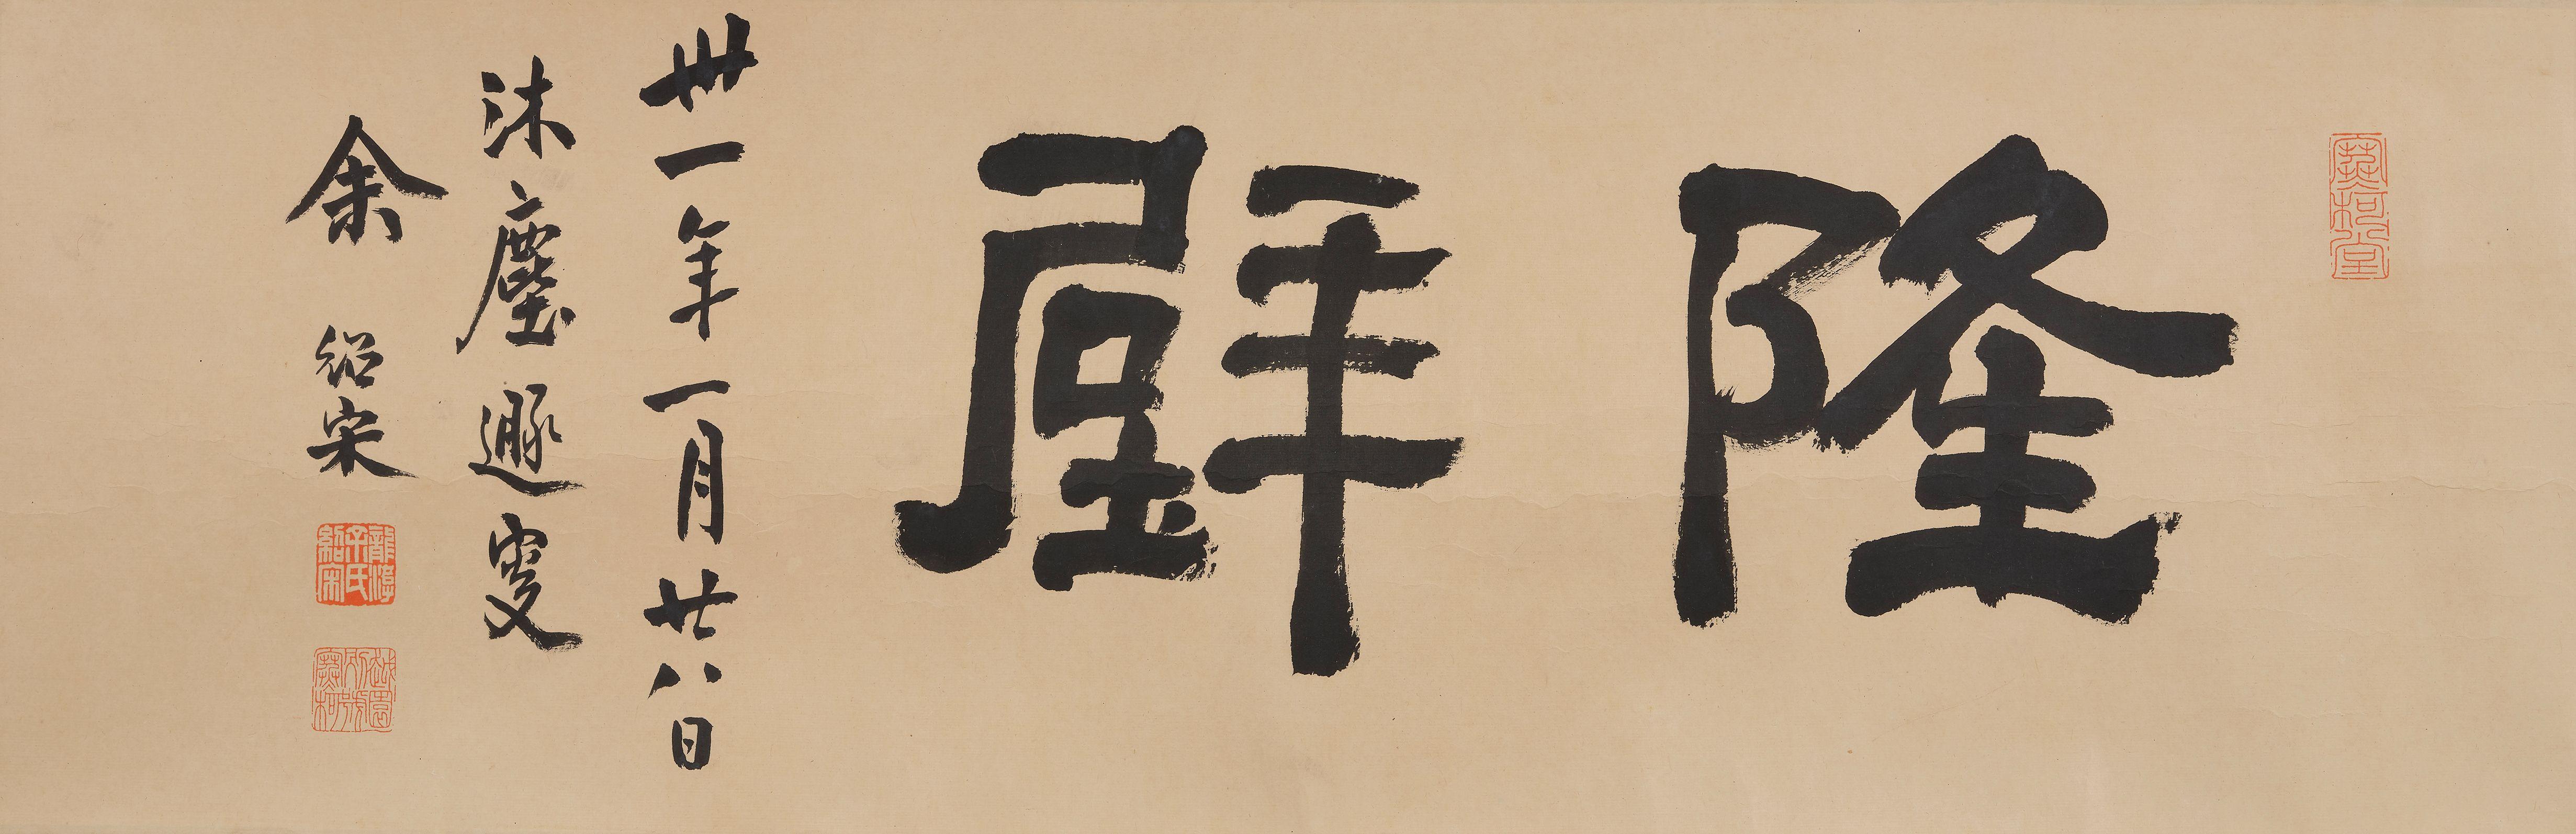 寒柯堂
隆璧
卅一年一月廿八日
沐塵遯叟
余紹宋
龍游余氏紹宋